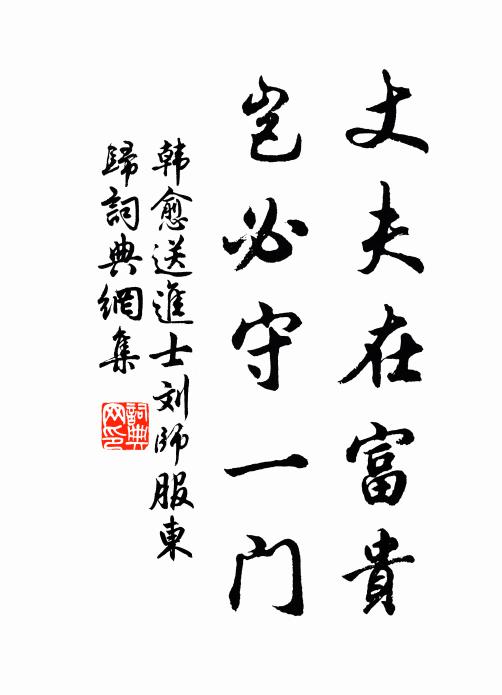 丈夫在富貴
豈必守一門
韓愈送進士刘師服東
歸詞典網集
詞典
网印